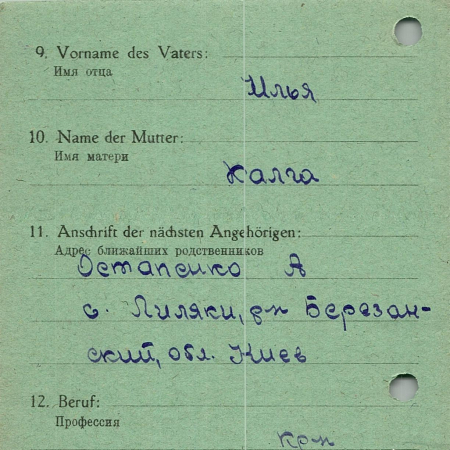 9. Vorname des Vaters:
Имя отца
Илья
10. Name der Mutter:
Имя матери
Калга
11. Anschrift der nächsten Angehörigen:
Адрес ближайших родственников
Остапенко А
с. Лиляки, р-н Березан-
ский, обл. Киев
12. Beruf:
Профессия